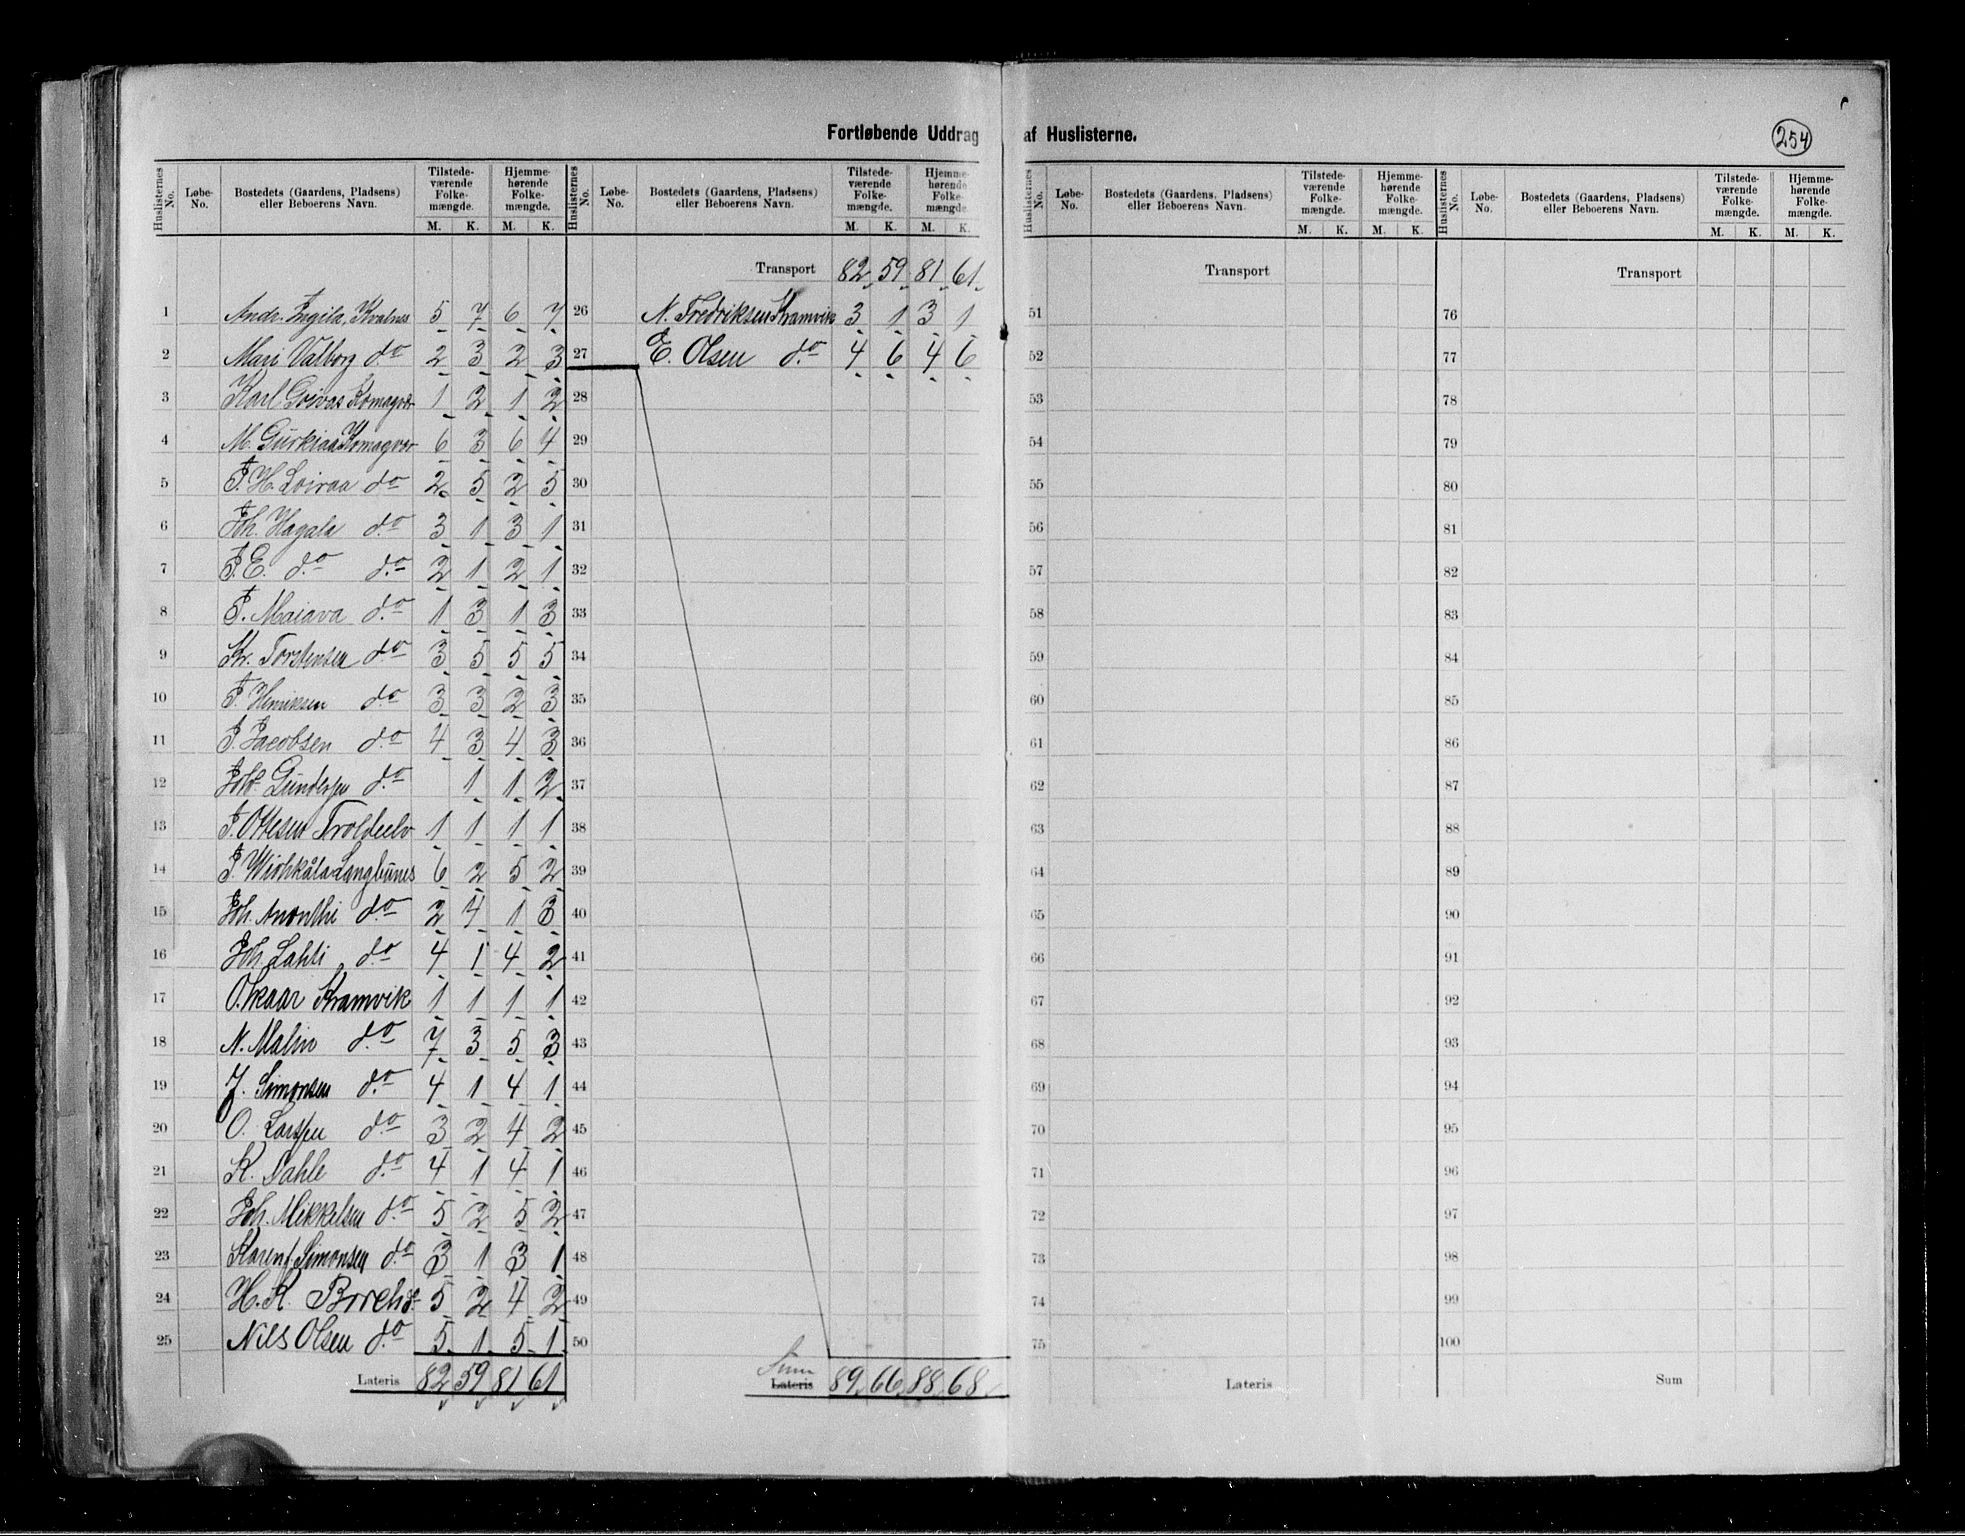 254
Fortløbende Uddrag af Huslisterne.
Huslisternes No. Løbe-No. Bostedets (Gaardens, Pladsens) eller Beboerens Navn. Tilstedeværende Folkemængde. M. K. Hjemmehørende Folkemængde. M. K.
Huslisternes No. Løbe-No. Bostedets (Gaardens, Pladsens) eller Beboerens Navn. Tilstedeværende Folkemængde. M. K. Hjemmehørende Folkemængde. M. K.
Huslisternes No. Løbe-No. Bostedets (Gaardens, Pladsens) eller Beboerens Navn. Tilstedeværende Folkemængde. M. K. Hjemmehørende Folkemængde. M. K.
Huslisternes No. Løbe-No. Bostedets (Gaardens, Pladsens) eller Beboerens Navn. Tilstedeværende Folkemængde. M. K. Hjemmehørende Folkemængde. M. K.
1 Andr. Ingila, Kvalnes 5 7 6 7
2 Mari Valborg do 2 3 2 3
3 Karl Goivas Komagvær 1 2 1 2
4 M. Gurkiaa Komagvær 6 3 6 4
5 J. H. Loiraa do 2 5 2 5
6 Joh. Hagala do 3 1 3 1
7 J. E. do do 2 1 2 1
8 J. Maiava do 1 3 1 3
9 Kr. Torstensen do 3 5 5 5
10 J. Henriksen do 3 3 2 3
11 J. Jacobsen do 4 3 4 3
12 Joh. Gundersen do 1 1 2
13 J. Ottesen Troldelv 1 1 1 1
14 J. Wiohkåla Langbunes 6 2 5 2
15 Joh. Anonthi do 2 4 1 3
16 Joh. Lahti do 4 1 4 2
17 O. Kaar Kramvik 1 1 1 1
18 N. Malin do 7 3 5 3
19 J. Simonsen do 4 1 4 1
20 O. Larssen do 3 2 4 2
21 K. Dahle do 4 1 4 1
22 Joh. Mikkelsen do 5 2 5 2
23 Karen J Simonsen do 3 1 3 1
24 H. K. Brrch do 5 2 4 2
25 Nils Olsen do 5 1 5 1
Lateris 82 59 81 61
Transport 82 59 81 61
26 N. Fredriksen Kramvik 3 1 3 1
27 E. Olsen do 4 6 4 6
28
29
30
31
32
33
34
35
36
37
38
39
40
41
42
43
44
45
46
47
48
49
50
Sum
Lateris 89 66 88 68
Transport
51
52
53
54
55
56
57
58
59
60
61
62
63
64
65
66
67
68
69
70
71
72
73
74
75
Lateris
Transport
76
77
78
79
80
81
82
83
84
85
86
87
88
89
90
91
92
93
94
95
96
97
98
99
100
Sum